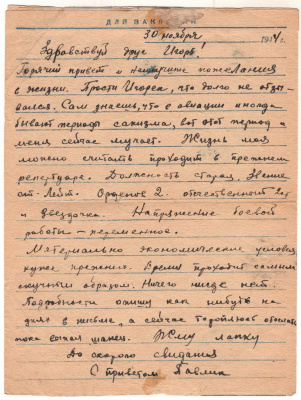 ДЛЯ
30 ноября 194 г.
Здравствуй друг Игорь!
Горячий привет и наилучшие пожелания
в жизни. Прости Игорек, что долго не отзы-
вался. Сам знаешь, что в авиации иногда
бывают периоды, вот этот период и
меня сейчас мучает. Жизнь моя
можно считать проходит в прежнем
репертуаре. Должность старая. Звание
ст. Лейт. Орденов 2. отечественной 2ст
и Звездочка. Напряжение боевой
работы – переменное.
Материально экономические условия
хуже прежнего. Время проходит самым
скучным образом. Ничего нигде нет.
Подробности опишу как нибудь на
днях в письме, а сейчас тороплюсь отослать
пока есть шанс. Жму лапку
До скорого свидания
С приветом Павлик